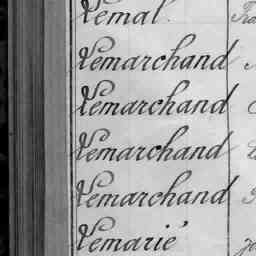 Lemal
Lemarchand
Lemarchand
Lemarchand
Lemarchand
Lemarié